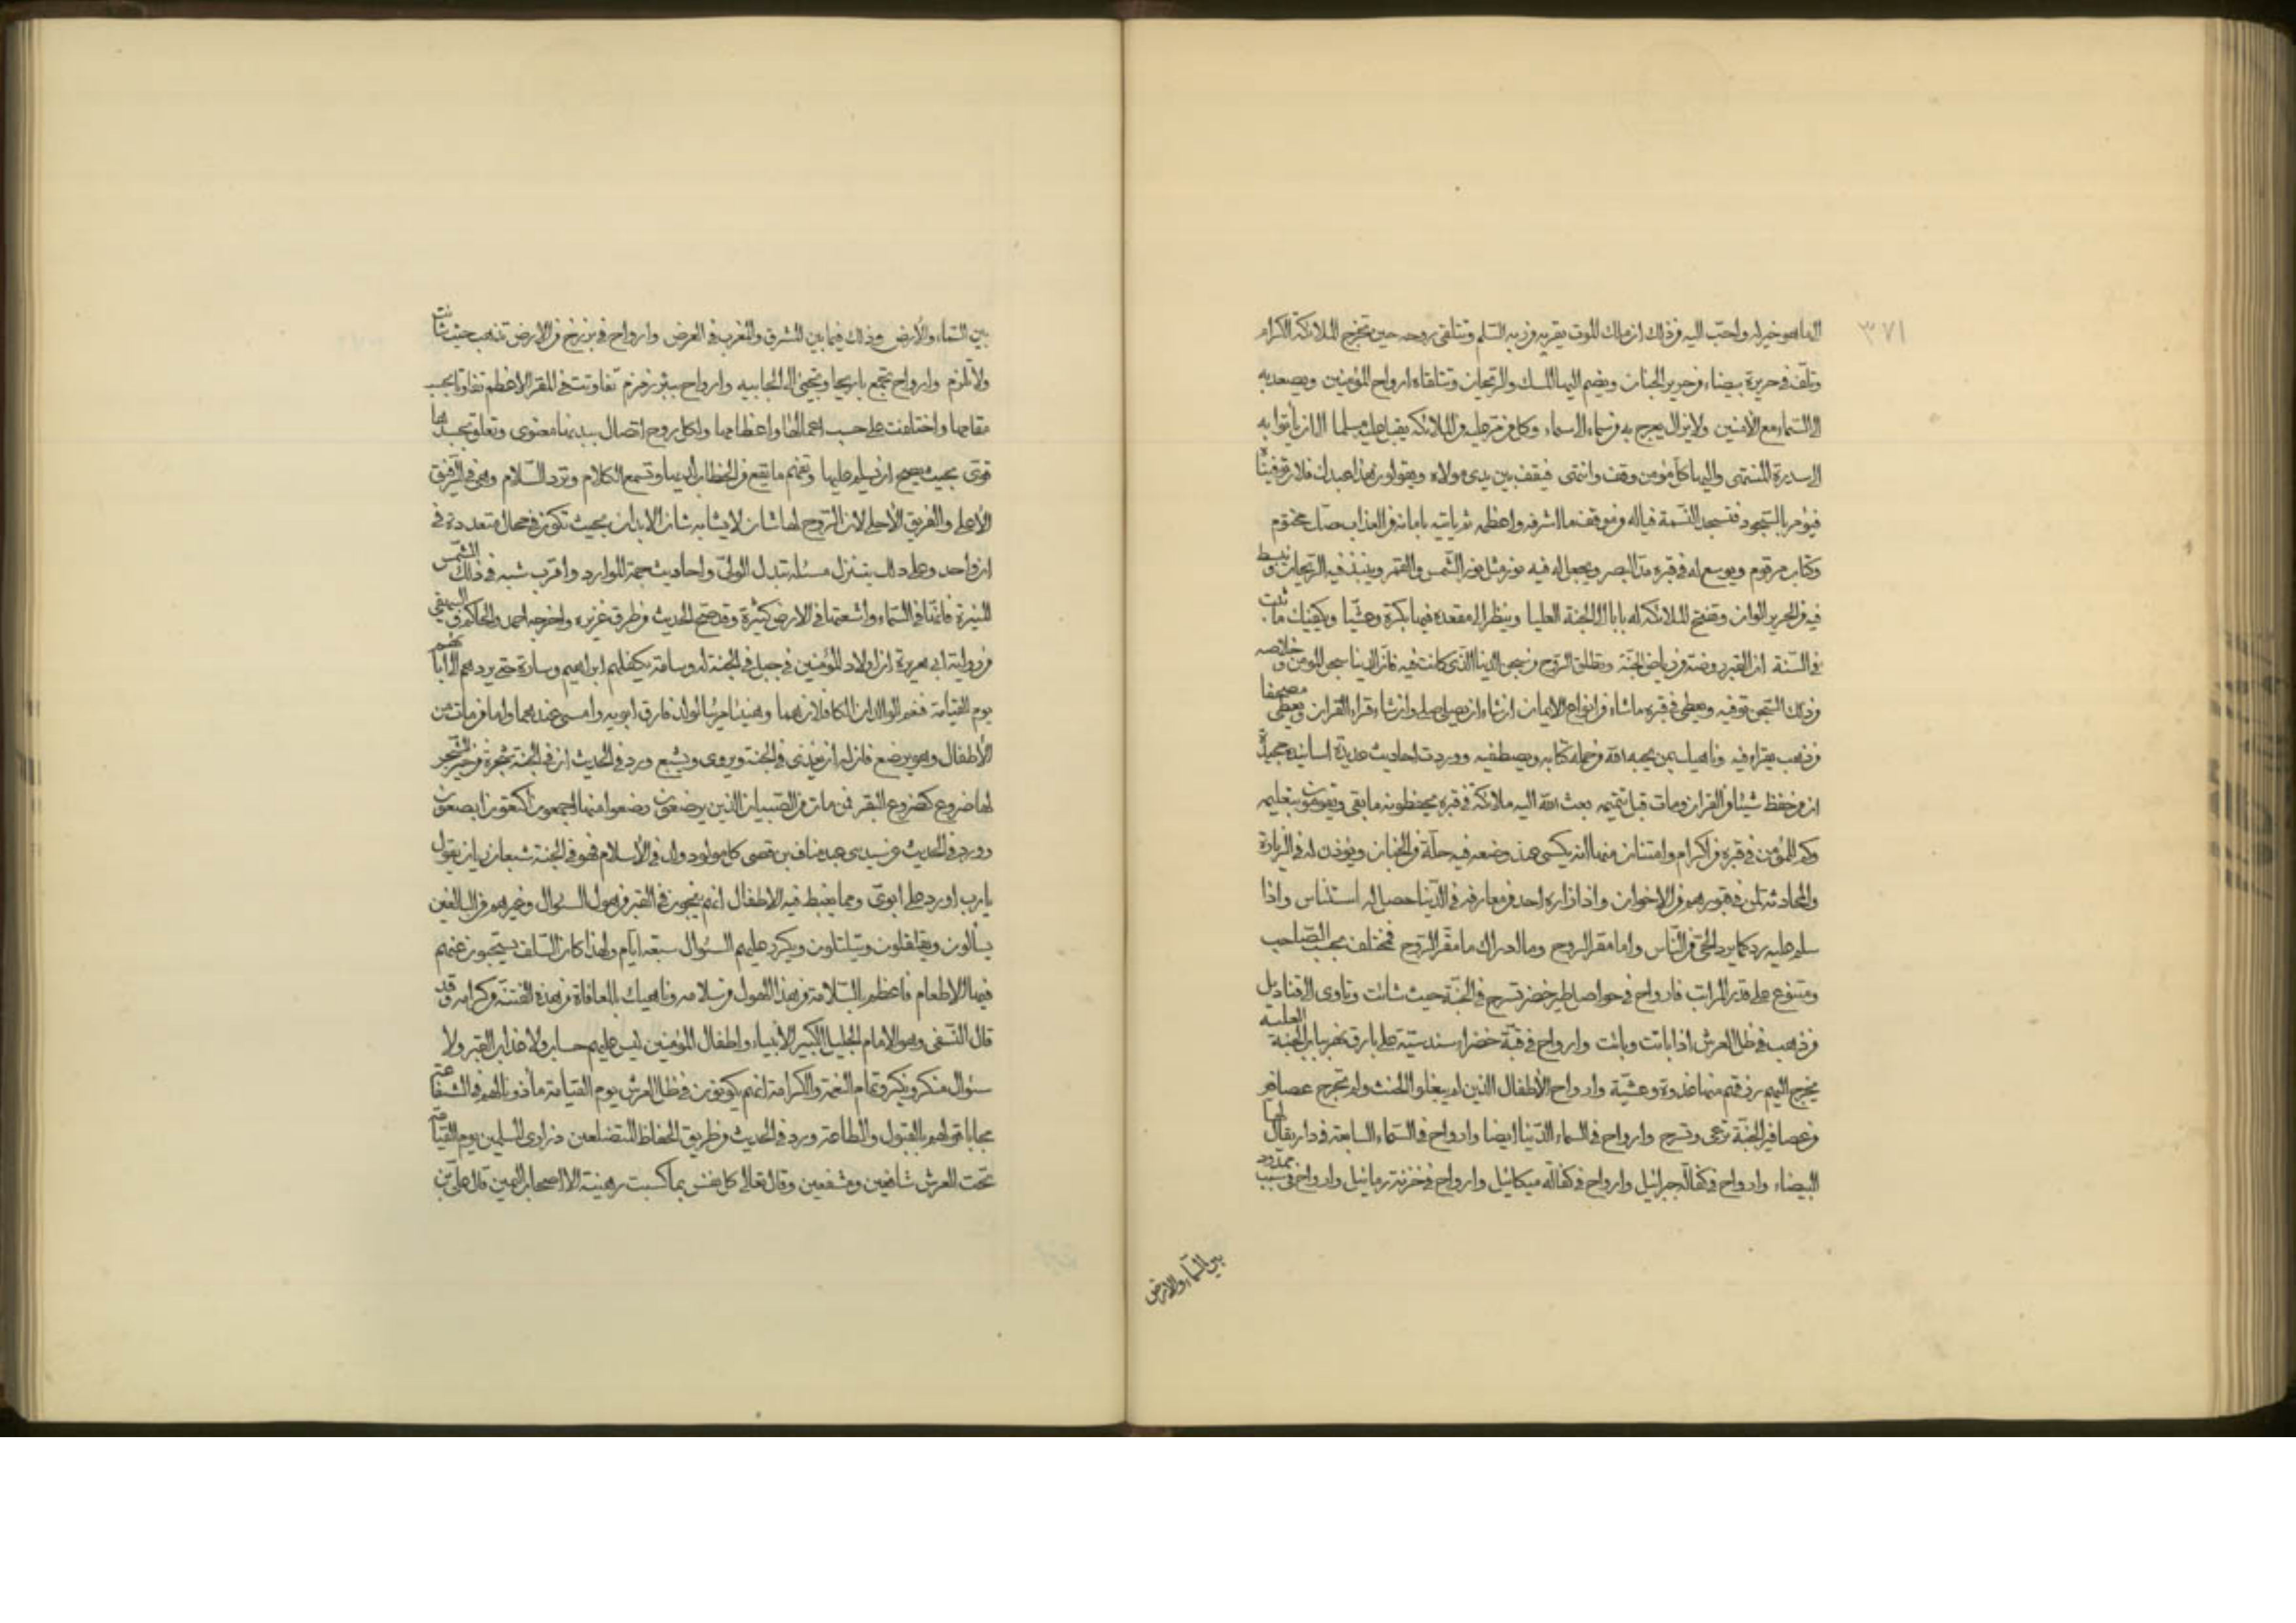 ٣٧١
الى ما هو خير له واحب اليه من ذلك ان ملك الموت يقريه من ربه السلم وتتلقى روحه حين تخرج الملائكة الكرام
وتلف في حريرة بيضاء من حرير الجنان ويضم اليها المسك والريحان وتتلقاه ارواح المؤمنين ويصعد به
الى السماء مع الامنين ولا يزال يعرج به من سماء الى سماء وكل من مر عليه من الملائكة يقبل عليه مسلما الى ان يأتوا به
الى سدرة المنتهى واليها كل مؤمن وقف وانتهى فيقف بين يدى مولاه ويقولون هذا عبدك فلان توفيناه
فيؤمر بالسجود فتسجد النسمة فياله من موقف ما اشرفه واعظمه ثم ياتيه بامانه من العذاب صك مختوم
وكتاب مرقوم ويوسع له في قبره مد البصر ويجعل له فيه نور مثل نور الشمس والقمر وينبذ فيه الريحان ويبسط
فيه من الحرير الوان وتفتح الملائكة له بابا الى الجنة العليا وينظر الى مقعده فيها بكرة وعشيا ويكفيك ما ثبت
في السنة ان القبر روضة من رياض الجنة وتطلق الروح من سجن الدنيا الذى كانت فيه فان الدنيا سجن المؤمن وخلاصه
من ذلك السجن توفيه ويعطى في قبره ما شاء من انواع الايمان ان شاء ان يصلى صلى وان شاء قراءة القران ويعطى مصحفا
من ذهب يقراء فيه وناهيك بمن يحبه الله من حملة كتابه ويصطفيه ووردت احاديث عديدة اسانيده جيدة
ان من حفظ شيئا من القران ومات قبل تتميمه بعث الله اليه ملائكة في قبره يحفظونه ما بقى ويقومون بتعليمه
وكم للمؤمن في قبره من اكرام وامتنان منها انه يكسى عند وضعه فيه حلة من الجنان ويؤذن له في الزيارة
والمحادثة لمن في قبورهم من الاخوان واذا زاره احد من معارفه في الدنيا حصل له استئناس واذا
سلم عليه رد كما يرد الحى من الناس واما مقر الروح وما ادراك ما مقر الروح فمختلف بحسب الصاحب
ومتنوع على قدر المراتب فارواح في حواصل طير خضر تسرح في الجنة حيث شائت وتاوى الى قناديل
من ذهب في ظل العرش اذا باتت وارواح في قبة خضراء سندسية على بارق نهر بباب الجنة العلية
يخرج اليهم رزقهم منها غدوة وعشية وارواح الاطفال الذين لم يبلغوا الحنث ولم تجرح عصافير
من عصافير الجنة ترعى وتسرح وارواح في السماء الدنيا ايضا وارواح في السماء السابعة في دار يقال لها
البيضاء وارواح في كفالة جبرائيل وارواح في كفالة ميكائيل وارواح في خزنة رمائيل وارواح في سبب ممدود
بين السماء والارض
بين السماء والارض وذلك فيما بين المشرق والمغرب في العرض وارواح في برزخ من الارض تذهب حيث شائت
ولا تلزم وارواح تجمع باريحا وتجئ الى الجابيه وارواح ببئر زمزم تفاوتت في المقر الاعظم تفاوتا بحسب
مقامها واختلفت على حسب اعمالها واعظامها ولكل روح اتصال ببدنها معنوى وتعلق بجسدها
قوى بحيث يصح ان يسلم عليها وتفهم ما يقع من الخطاب اليها وتسمع الكلام وترد السلام وهي في الرفيق
الاعلى والفريق الاحلى لان الروح لها شان لا يشابه شان الابدان بحيث تكون في محال متعددة في
ان واحد وعلى ذلك يتنزل مسئلة تبدل الولى واحاديث جمة الموارد واقرب شبه في ذلك الشمس
المنيرة فانها في السماء واشعتها في الارض كثيرة وقد صح الحديث من طرق غزيره واخرجه احمد والحاكم والبيهقى
من رواية ابي هريرة ان اولاد المؤمنين في جبل في الجنة له وسامة يكفلهم ابراهيم وسارة حتى يردهم الى ابائهم
يوم القيامة فنعم الوالدان الكافلان هما وهنيئا مريئا لولد فارق ابويه وامسى عندهما واما من مات من
الاطفال وهو يرضع فان له ان يغذى في الجنة ويروى ويشبع وورد في الحديث ان في الجنة شجرة من خير الشجر
لها ضروع كضروع البقر فمن مات من الصبيان الذين يرضعون رضعوا منها اجمعون
وورد في الحديث عن سيد بنى عبد مناف بن قصى كل مولود ولد في الاسلام فهو في الجنة شبعان ريان يقول
يارب اورد على ابوى ومما يغبط فيه الاطفال انهم ينجون في القبر من هول السؤال وغيرهم من البالغين
يسألون ويقلقلون ويتلتلون ويكرر عليهم السؤال سبعة ايام ولهذا كان السلف يستحبون عنهم
فيها الاطعام فاعظم بالسلامة من هذا الهول من سلامه وناهيك بالمعافاة من هذه الفتنة من كرامه وقد
قال النسفى وهو الامام الجليل الكبير الانبياء واطفال المؤمنين ليس عليهم حساب ولا عذاب القبر ولا
سئوال منكر ونكير وتمام النعمة والكرامة انهم يكونون في ظل العرش يوم القيامة مأذونا لهم في الشفاعة
مجابا قولهم بالقبول والطاعة ورد في الحديث من طريق الحفاظ المتضلعين ذرارى المسلمين يوم القيامة
تحت العرش شافعين ومشفعين وقال تعالى كل نفس بما كسبت رهينة الا اصحاب اليمين قال على بن